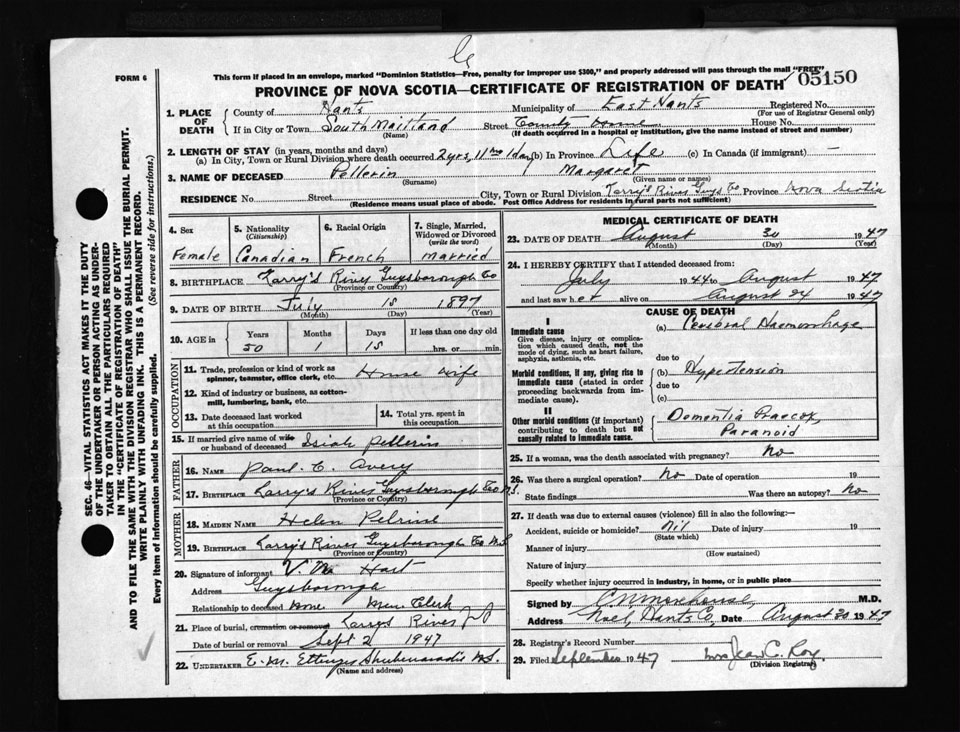 FORM 6
This form if placed in an envelope, marked "Dominion Statistics—Free, penalty for improper use $300," and properly addressed will pass through the mail "FREE"
05150
PROVINCE OF NOVA SCOTIA—CERTIFICATE OF REGISTRATION OF DEATH
1. PLACE OF DEATH County of Hants Municipality of East Hants Registered No. (For use of Registrar General only)
If in City or Town South Maitland (Name) Street County Home House No.
(If death occurred in a hospital or institution, give the name instead of street and number)
2. LENGTH OF STAY (in years, months and days)
(a) In City, Town or Rural Division where death occurred 2 yrs, 11 mo 1 day (b) In Province Life (c) In Canada (if immigrant) —
3. NAME OF DECEASED Pellerin (Surname) Margaret (Given name or names)
RESIDENCE No. Street City, Town or Rural Division Larry's River Guys Co Province Nova Scotia
(Residence means usual place of abode. Post Office Address for residents in rural parts not sufficient)
4. Sex Female
5. Nationality (Citizenship) Canadian
6. Racial Origin French
7. Single, Married, Widowed or Divorced (write the word) Married
8. BIRTHPLACE Larry's River Guysborough Co (Province or Country)
9. DATE OF BIRTH July (Month) 15 (Day) 1897 (Year)
10. AGE in Years 50 Months 1 Days 15 If less than one day old hrs. or min.
OCCUPATION
11. Trade, profession or kind of work as spinner, teamster, office clerk, etc. House wife
12. Kind of industry or business, as cotton-mill, lumbering, bank, etc.
13. Date deceased last worked at this occupation
14. Total yrs. spent in this occupation
15. If married give name of wife or husband of deceased Isiah Pellerin
FATHER
16. NAME Paul C. Avery
17. BIRTHPLACE Larry's River Guysborough Co N.S. (Province or Country)
MOTHER
18. MAIDEN NAME Helen Pelrine
19. BIRTHPLACE Larry's River Guysborough Co N.S (Province or Country)
20. Signature of informant V. Hart
Address Guysborough
Relationship to deceased None Mun Clerk
21. Place of burial, cremation or removal Larry's River
Date of burial or removal Sept 2 1947
22. UNDERTAKER E. M. Ettinger Shubenacadie N.S. (Name and address)
MEDICAL CERTIFICATE OF DEATH
23. DATE OF DEATH August (Month) 30 (Day) 1947 (Year)
24. I HEREBY CERTIFY that I attended deceased from:
July 1944 to August 1947
and last saw her alive on August 24 1947
CAUSE OF DEATH
I
Immediate cause
Give disease, injury or complication which caused death, not the mode of dying, such as heart failure, asphyxia, asthenia, etc.
(a) Cerebral Haemorrhage
due to
Morbid conditions, if any, giving rise to immediate cause (stated in order proceeding backwards from immediate cause).
(b) Hypertension
due to
(c)
II
Other morbid conditions (if important) contributing to death but not causally related to immediate cause.
Dementia Praecox
Paranoid
25. If a woman, was the death associated with pregnancy? No
26. Was there a surgical operation? No Date of operation 19
State findings Was there an autopsy? No
27. If death was due to external causes (violence) fill in also the following:—
Accident, suicide or homicide? Nil (State which) Date of injury 19
Manner of injury (How sustained)
Nature of injury
Specify whether injury occurred in industry, in home, or in public place
Signed by C. N. Morehouse, M.D.
Address Noel, Hants Co, Date August 30 1947
28. Registrar's Record Number
29. Filed September 1947 Mrs Jean C. Roy (Division Registrar)
SEC. 46—VITAL STATISTICS ACT MAKES IT THE DUTY
OF THE UNDERTAKER OR PERSON ACTING AS UNDER-
TAKER TO OBTAIN ALL THE PARTICULARS REQUIRED
IN THE "CERTIFICATE OF REGISTRATION OF DEATH"
AND TO FILE THE SAME WITH THE DIVISION REGISTRAR WHO SHALL ISSUE THE BURIAL PERMIT.
WRITE PLAINLY WITH UNFADING INK. THIS IS A PERMANENT RECORD.
Every item of Information should be carefully supplied. (See reverse side for instructions.)